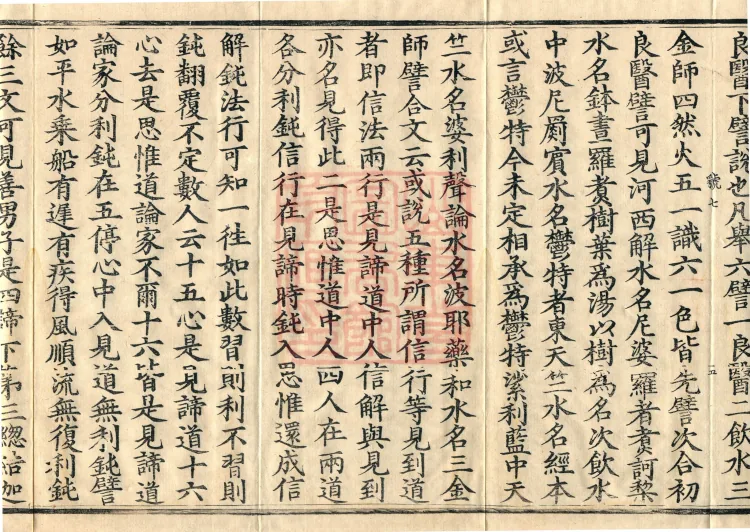 良醫下譬說也凡舉六譬一良醫二飲水三
號七
五
金師四然火五一識六一色皆先譬次合初
良醫譬可見河西解水名尼婆羅者煑訶棃
水名鉢晝羅煑樹葉爲湯以樹爲名次飲水
中波尼罽賔水名鬱特者東天竺水名經本
或言鬱特今未定相承爲鬱特娑利藍中天
竺水名婆利聲論水名波耶藥和水名三金
師譬合文云或說五種所謂信行等見到道
者即信法兩行是見諦道中人信解與見到
亦名見得此二是思惟道中人四人在兩道
各分利鈍信行在見諦時鈍入思惟還成信
解鈍法行可知一徃如此數習則利不習則
鈍翻覆不定數人云十五心是見諦道十六
心去是思惟道論家不爾十六皆是見諦道
論家分利鈍在五停心中入見道無利鈍譬
如平水乗船有遅有疾得風順流無復利鈍
餘三文可見善男子是四諦下苐三緫結加